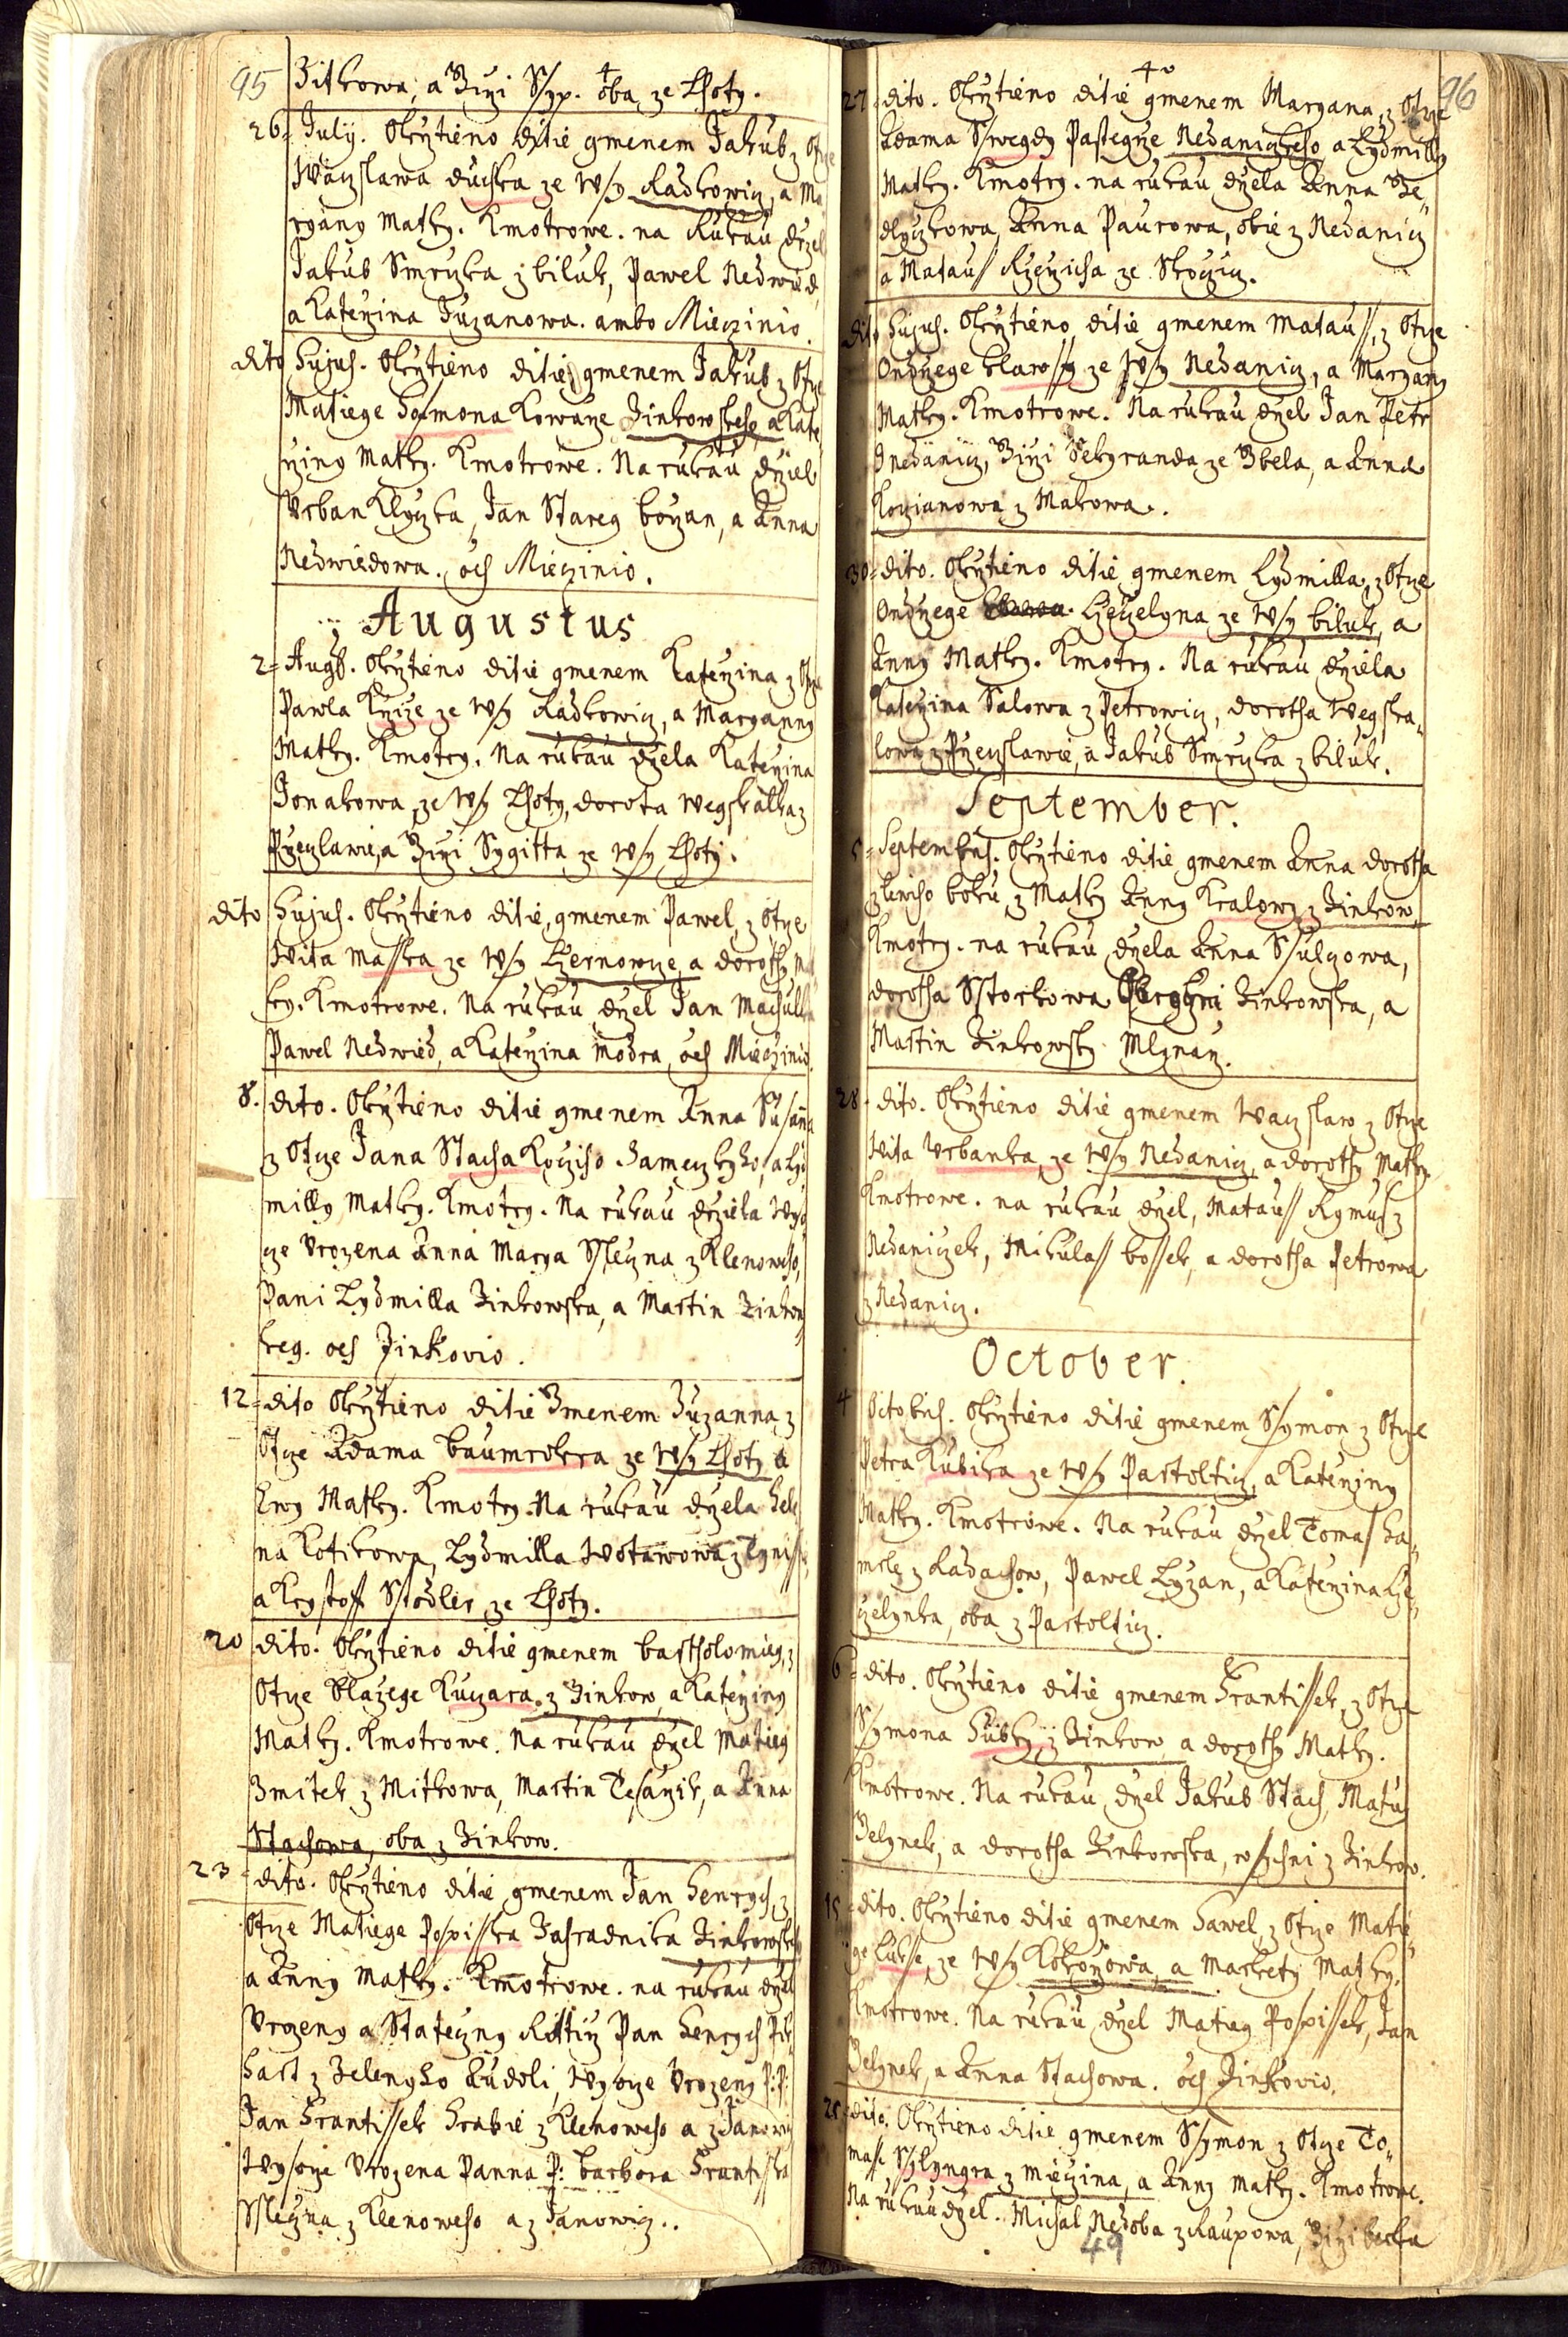 95 Zitkowa, a Zizi Ssyp. oba ze Lhoty.
26 = July. Okrztieno ditie gmenem Jakub z Otcze
Waczslawa duchka ze Wsy Radkowicz, a Ma
ryany Matky. Kmotrowe. na Rukau držel
Jakub Smrczka z biluk, Pawel Nedwied,
a Katerzina Zuzanowa. ambo Mieczinio.
dito hujus. Okrztieno ditie gmenem Jakub z Otcze
Matiege Symona Kowarze Zinkowskeho, a Kate
rziny Matky. Kmotrowe. Na rukau držel
Urban Klyczka, Jan Stareg bozan, a Anna
Nedwiedowa. oes Mieczinio.
Augustus
2 = Augs. Okrztieno ditie gmenem Katerzina z Otcze
Pawla Knize ze Wsy Radkowicz, a Maryanny
Matky. Kmotry. Na rukau držela Katerzina
Jonakowa ze Wsy Lhoty, dorota Wegskalka z
Przeczlawie, a Zizi Sygitta ze Wsy Lhoty.
dito hujus. Okrztieno ditie, gmenem Pawel, z Otcze
Wita Masska ze Wsy Czernowcze, a dorothy Mat
ky. Kmotrowe. Na rukau držel Jan Machulka
Pawel Nedwied, a Katerzina Modra, oes Mieczinio.
8. dito. Okrztieno ditie gmenem Anna Susanna
z Otcze Jana Stacha Kocziho Zameczkyho, a Lyd
milly Matky. Kmotry. Na rukau držiela Wyso
cze Urozena Anna Marya Ssleczna z Klenoweho,
Pani Lydmilla Zinkowska, a Martin Zinkow
skeg. oes Zinkovio.
12 = dito Okrztieno ditie Zmenem Zuzanna z
Otcze Adama baumrokra ze Wsy Lhoty a
Ewy Matky. Kmotry. Na rukau držela Hele
na Kotikowa, Lydmilla Wotawowa z
a Krystoff Stodler ze Lhoty.
20 dito. Okrztieno ditie gmenem bartholomieg, z
Otcze Blazege Kuczara z Zinkow, a Katerziny
Matky. Kmotrowe. Na rukau držel Matieg
Zmitek z Mitkowa, Martin Tesarzik, a Anna
Stachowa, oba z Zinkow.
23 = dito. Okrztieno ditie gmenem Jan Henrych, z
Otcze Matiege Pospisska Zahradnika Zinkowskeho
a Anny Matky. Kmotrowe. na rukau držel
Urozeny a Stateczny Rittirz Pan Henrych Pik
hart z Zelenyho Audoli, Wysocze Urozeny P: P:
Jan Frantissek Hrabie z Klenoweho a z Janowicz
Wysocze Urozena Panna P: barbora Frantisska
Ssleczna z Klenoweho a z Janowicz..
96
27 = dito. Okrztieno ditie gmenem Maryana, z Otcze
Adama Sswegdy Pastegrze Nedaniczkeho, a Lydmilly
Matky. Kmotry. na rukau držela Anna Be„
dlyczkowa, Anna Paurowa, obie z Nedanicz
a Matauss Rzerzicha ze Skocziz.
dito hujus. Okrztieno ditie gmenem Matauss, z Otcze
Ondrzege klarossy ze Wsy Nedanicz, a Maryany
Matky. Kmotrowe. Na rukau držel Jan Petr
z nedanicz, Zizi Sekyranda ze Zbela, a Anna
Kozianowa z Makowa.
30 = dito. Okrztieno ditie gmenem Lydmilla, z Otcze
Ondrzege Czeczelyna ze Wsy biluk, a
Anny Matky. Kmotry. Na rukau držiela
Katerzina Salowa z Petrowicz, dorotha Wegska„
lowa z Przeczslawie, a Jakub Smrczka z biluk.
September.
Septembris. Okrztieno ditie gmenem Anna dorotha
z lewiho boku, z Matky Anny Kralowy z Zinkow,
Kmotry. na rukau držela Anna Ssulczowa,
dorotha Sstorkowa Zinkowska, a
Martin Zinkowsky Mlynarz.
28 = dito. Okrztieno ditie gmenem Waczslaw z Otcze
Wita Urbanka, ze Wsy Nedanicz, a dorothy Matky
Kmotrowe. na rukau držel, Matauss Rymuss z
Nedaniczek, Mikulass bossek, a dorotha Petrowa
z Nedanicz.
October.
4 Octobris. Okrztieno ditie gmenem Ssymon z Otcze
Petra Kubika ze Wsy Partoltic, a Katerziny
Matky. Kmotrowe. Na rukau držel Tomas Ha„
mele z Radachow, Pawel Lyzan, a Katerzina Cze„
czelynka, oba z Partoltic.
6 = dito. Okrztieno ditie gmenem Frantissek, z Otcze
Ssymona Hubky z Zinkow, a dorothy Matky.
Kmotrowe. Na rukau držel Jakub Stach, Matus
Zelynek, a dorotha Zinkowska, wssichni z Zinkow.
15 = dito. Okrztieno ditie gmenem Hawel, z Otcze Matie„
ge Luksse, ze Wsy Kokorzowa, a Markety Matky.
Kmotrowe. Na rukau držel Matieg Pospissek, Jan
Zelynek, a Anna Stachowa. oes Zinkovio.
25 = dito. Okrztieno ditie gmenem Ssymon z Otcze To„
masse Sslyngra z Mieczina, a Anny Matky. Kmotrowe.
Na rukau držel. Michal Nedoba z Raupowa, Zizi
49